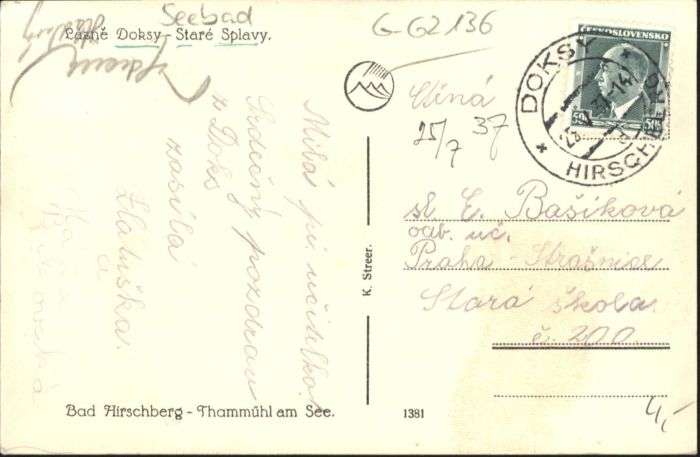 Seebad
G-G2136
Lázně Doksy - Staré Splavy.
ČESKOSLOVENSKO
50
DOKSY
HIRSCHBERG
25/7 37
Milá pí. učitelko!
Srdečný pozdrav
z Doks
zasílá
Zlatuška
a
sl. E. Bašíková
odb. uč.
Praha - Strašnice
Stará škola
č. 200.
K. Streer.
Bad Hirschberg - Thammühl am See.
1381
4,-